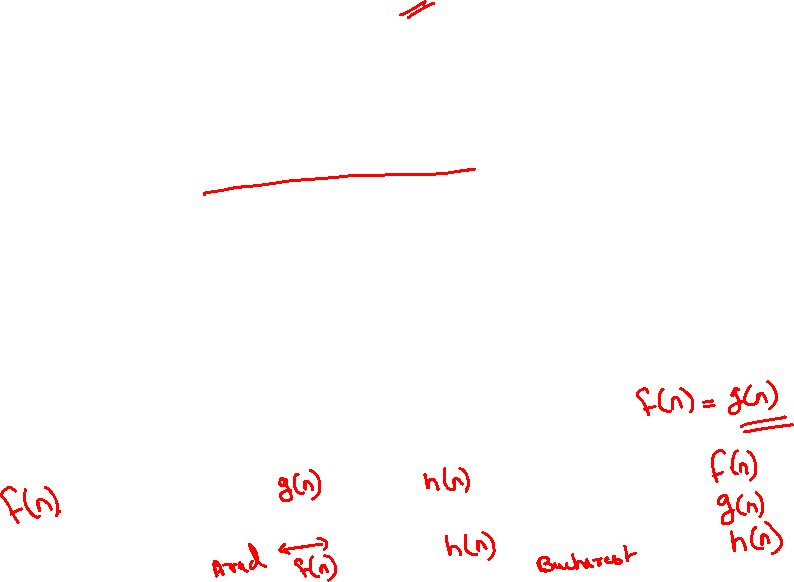 f(n) = g(n)
f(n)
g(n)
h(n)
f(n) g(n) h(n)
Arad ⟷ f(n) h(n) Bucharest